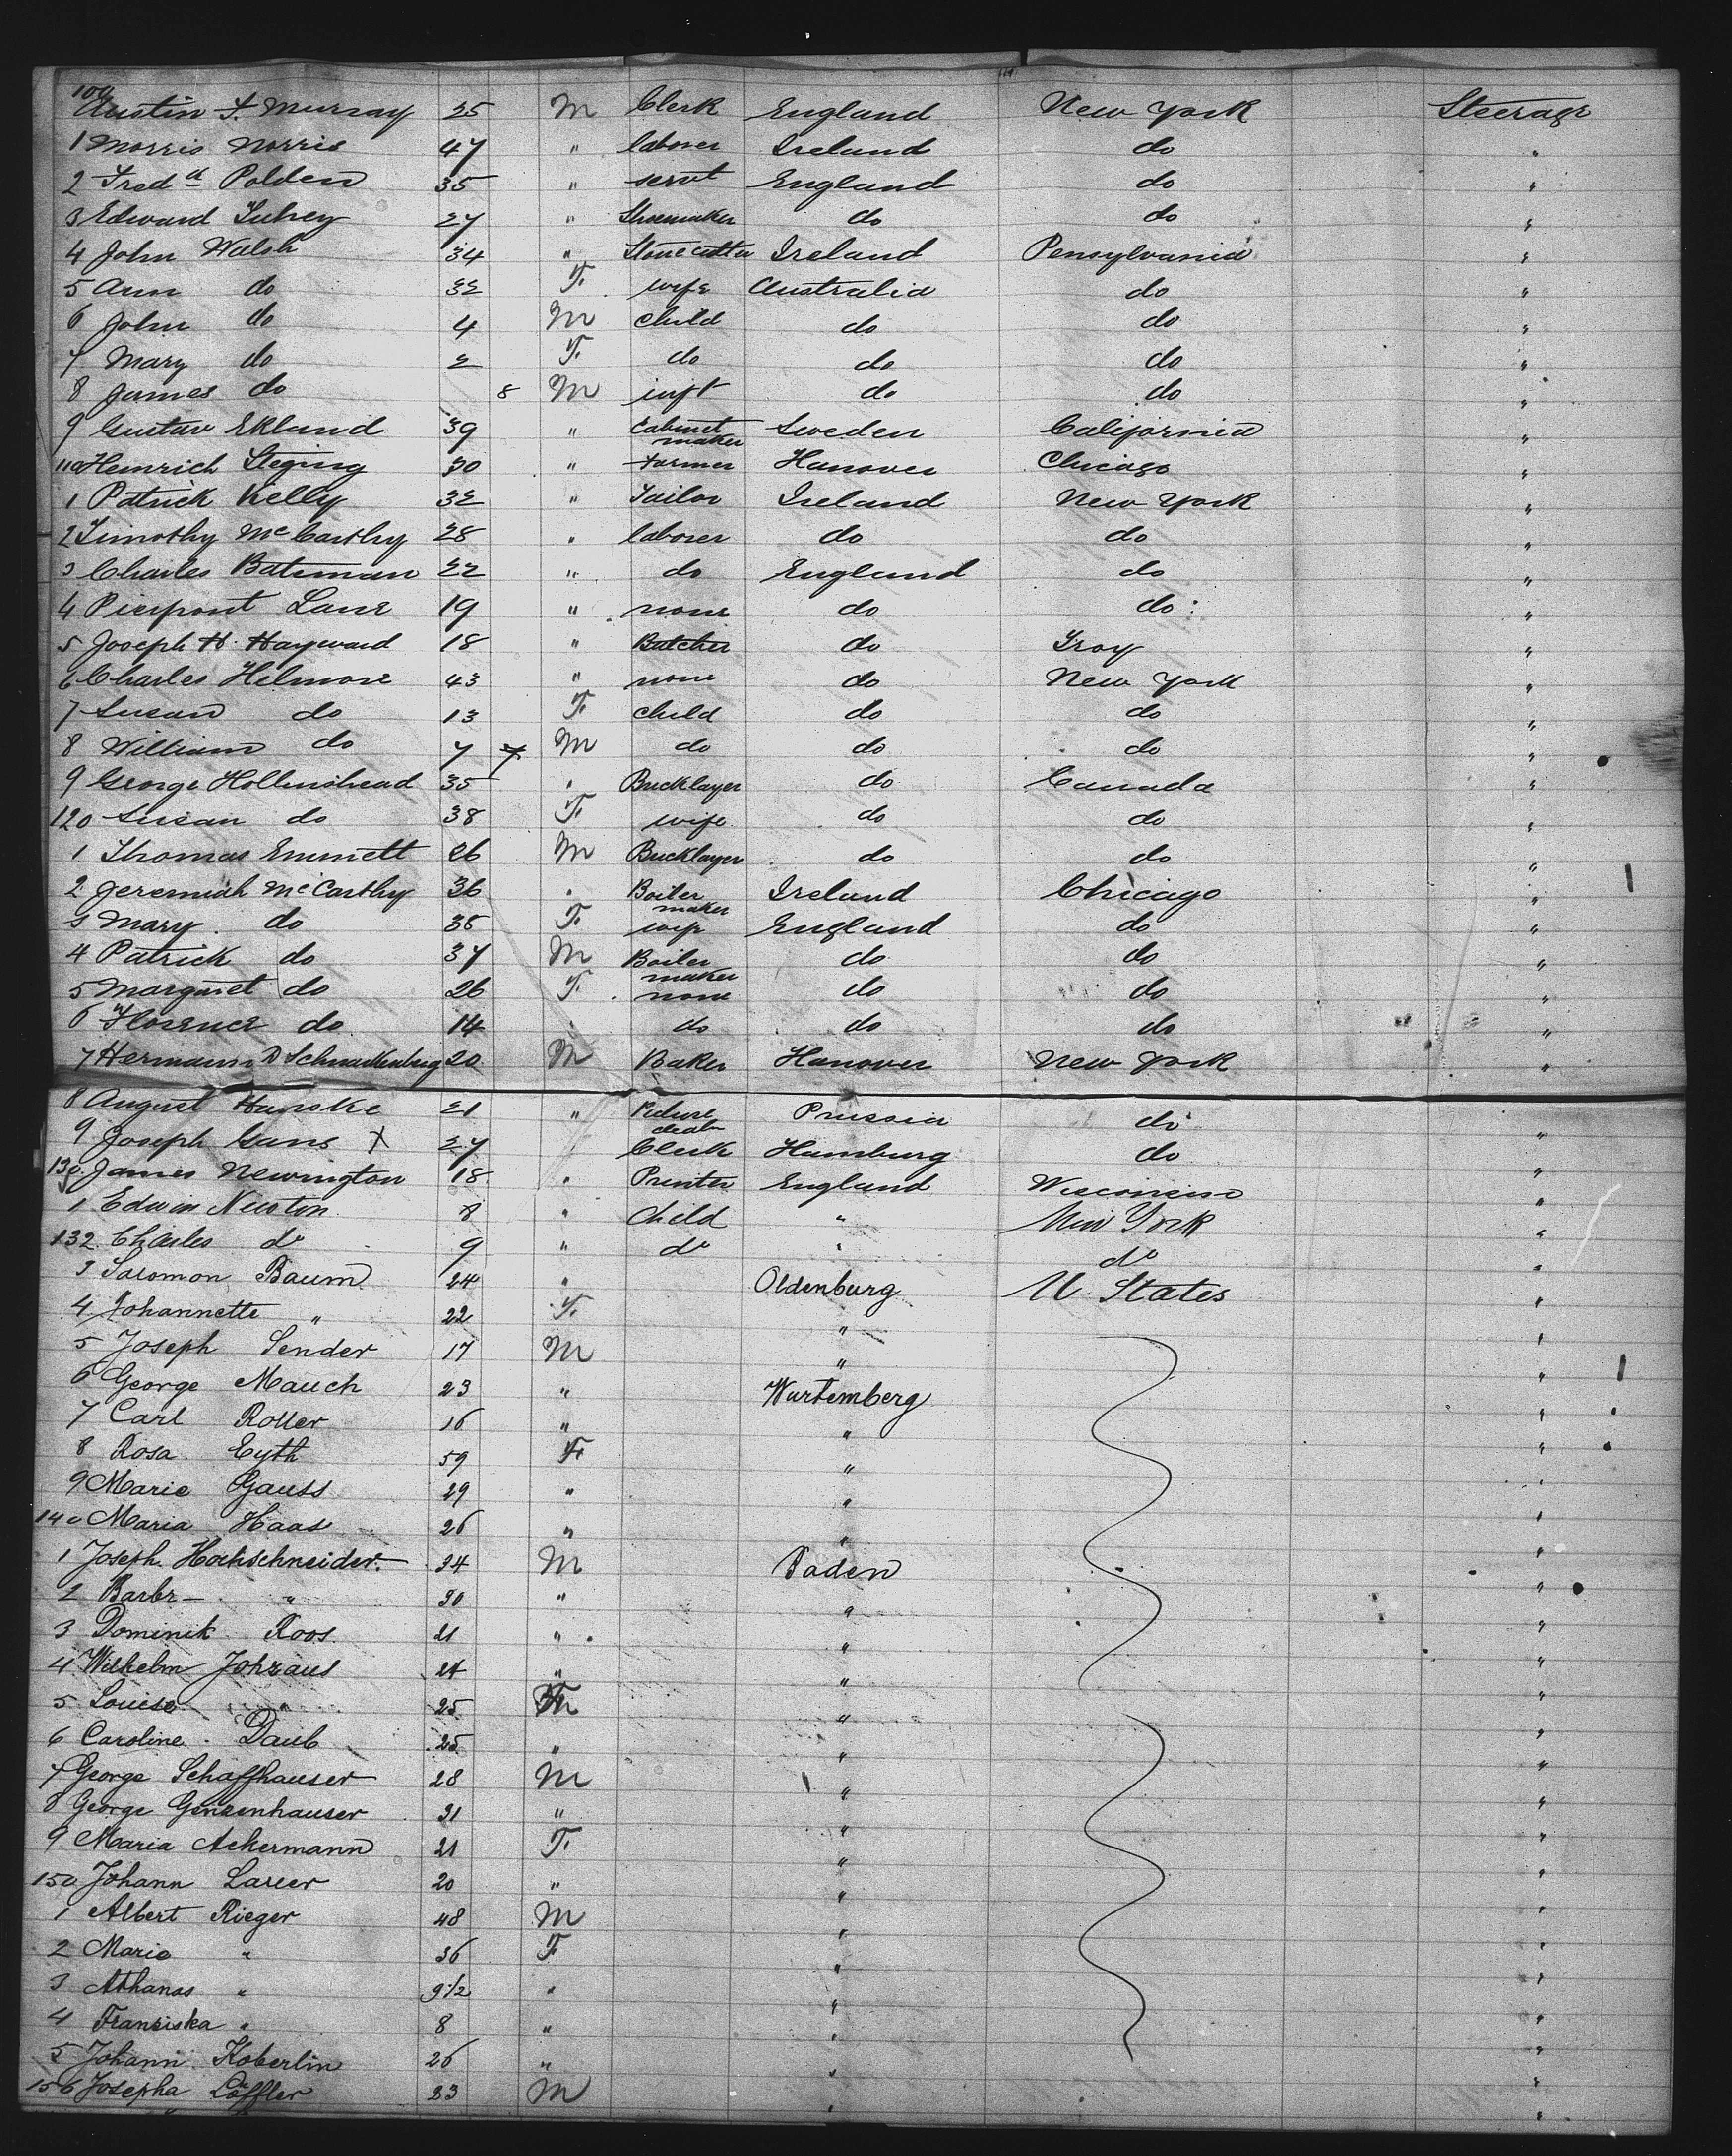 109 Austin F. Murray 25 M Clerk England New York Steerage
1 Morris Norris 47 " laborer Ireland do "
2 Fredk Polden 35 " servt England do "
3 Edward 27 " Shoemaker do do "
4 John Walsh 34 " Stonecutter Ireland Pensylvania "
5 Ann do 32 F. wife Australia do "
6 John do 4 M child do do "
7 Mary do 2 F. do do do "
8 James do 8 M inft do do "
9 Gustav Eklund 39 " Cabinet maker Sweden California "
110 Heinrich Steging 30 " Farmer Hanover Chicago "
1 Patrick Kelly 32 " Tailor Ireland New York "
2 Timothy McCarthy 28 " laborer do do "
3 Charles Bateman 22 " do England do "
4 Pierpont Lane 19 " none do do "
5 Joseph H. Hayward 18 " Butcher do Troy "
6 Charles Helmore 43 " none do New York "
7 Susan do 13 F. child do do "
8 William do 7 M do do do "
9 George Hollinshead 35 " Bricklayer do Canada "
120 Susan do 38 F. wife do do "
1 Thomas Emmett 26 M Bricklayer do do "
2 Jeremiah McCarthy 36 " Boiler maker Ireland Chicago "
3 Mary do 35 F. wife England do "
4 Patrick do 37 M Boiler maker do do "
5 Margaret do 26 F. none do do "
6 Florence do 14 " do do do "
7 Hermann D Schnackenberg 20 M Baker Hanover New York "
8 August Hanske 21 " Picture dealr Prussia do "
9 Joseph Gans X 27 " Clerk Hamburg do "
130. James Newington 18 " Printer England Wisconsin "
1 Edwin Newton 8 " Child " New York "
132 Charles do 9 " do " do "
3 Salomon Baum 24 " Oldenburg U. States "
4 Johannette " 22 F. " "
5 Joseph Sender 17 M " "
6 George Mauch 23 " Wurtemberg "
7 Carl Roller 16 " " "
8 Rosa Eyth 59 F. " "
9 Marie Gauss 29 " " "
140 Maria Haas 26 " " "
1 Joseph Hochschneider 34 M Baden "
2 Barbr " 30 " " "
3 Dominik Roos 21 " " "
4 Wilhelm Johraus 24 " " "
5 Louise " 25 " "
6 Caroline Daub 25 " " "
7 George Schaffhauser 28 M " "
8 George Genzenhauser 31 " " "
9 Maria Ackermann 21 F. " "
150 Johann 20 " " "
1 Albert Rieger 48 M " "
2 Marie " 36 F. " "
3 Athanas " 9 1/2 " " "
4 Franziska " 8 " " "
5 Johann Koberlin 26 " " "
156 Josepha Löffler 23 M " "